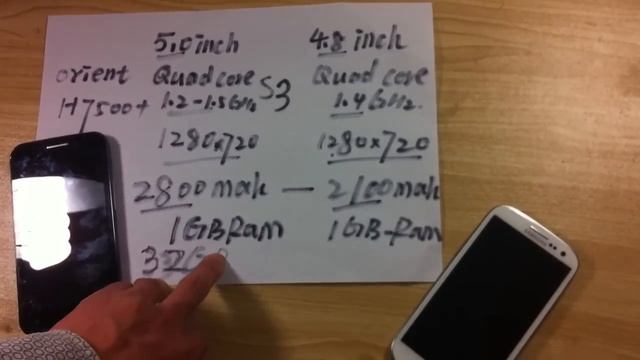 5.0 inch 4.8 inch
orient Quad core S3 Quad core
H7500+ 1.2-1.5GHz 1.4GHz.
1280x720 1280x720
2800mah — 2100mah
1GB Ram 1GB-Ram
SAMSUNG